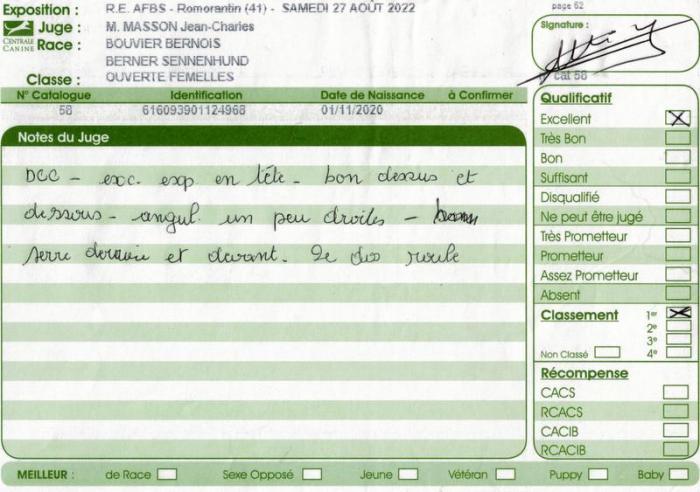 Exposition : R.E. AFBS - Romorantin (41) - SAMEDI 27 AOÛT 2022
page 62
CENTRALE CANINE
Juge : M. MASSON Jean-Charles
Signature :
Race : BOUVIER BERNOIS
BERNER SENNENHUND
Classe : OUVERTE FEMELLES
Cat 58
N° Catalogue Identification Date de Naissance à Confirmer
58 616093901124968 01/11/2020
Notes du Juge
DCC - exc. exp en tête - bon dessus et
dessous - angul. un peu droites -
serre derrière et devant. Le dos roule
Qualificatif
Excellent X
Très Bon
Bon
Suffisant
Disqualifié
Ne peut être jugé
Très Prometteur
Prometteur
Assez Prometteur
Absent
Classement 1er X
2e
3e
Non Classé 4e
Récompense
CACS
RCACS
CACIB
RCACIB
MEILLEUR : de Race Sexe Opposé Jeune Vétéran Puppy Baby